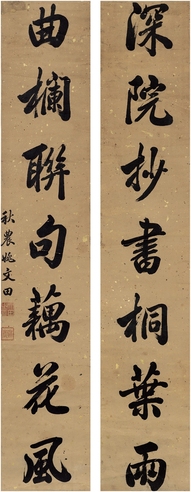 深院抄書桐葉雨
曲欄聯句藕花風
秋農姚文田